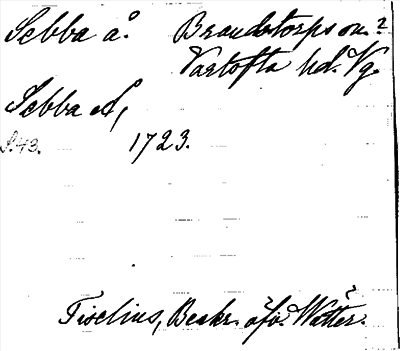 Sebba å. Brandstorps sn.?
Vartofta hd. Vg.
Sebba Å,
S.43. 1723.
Tiselius, Beskr. öfv. Wätter.